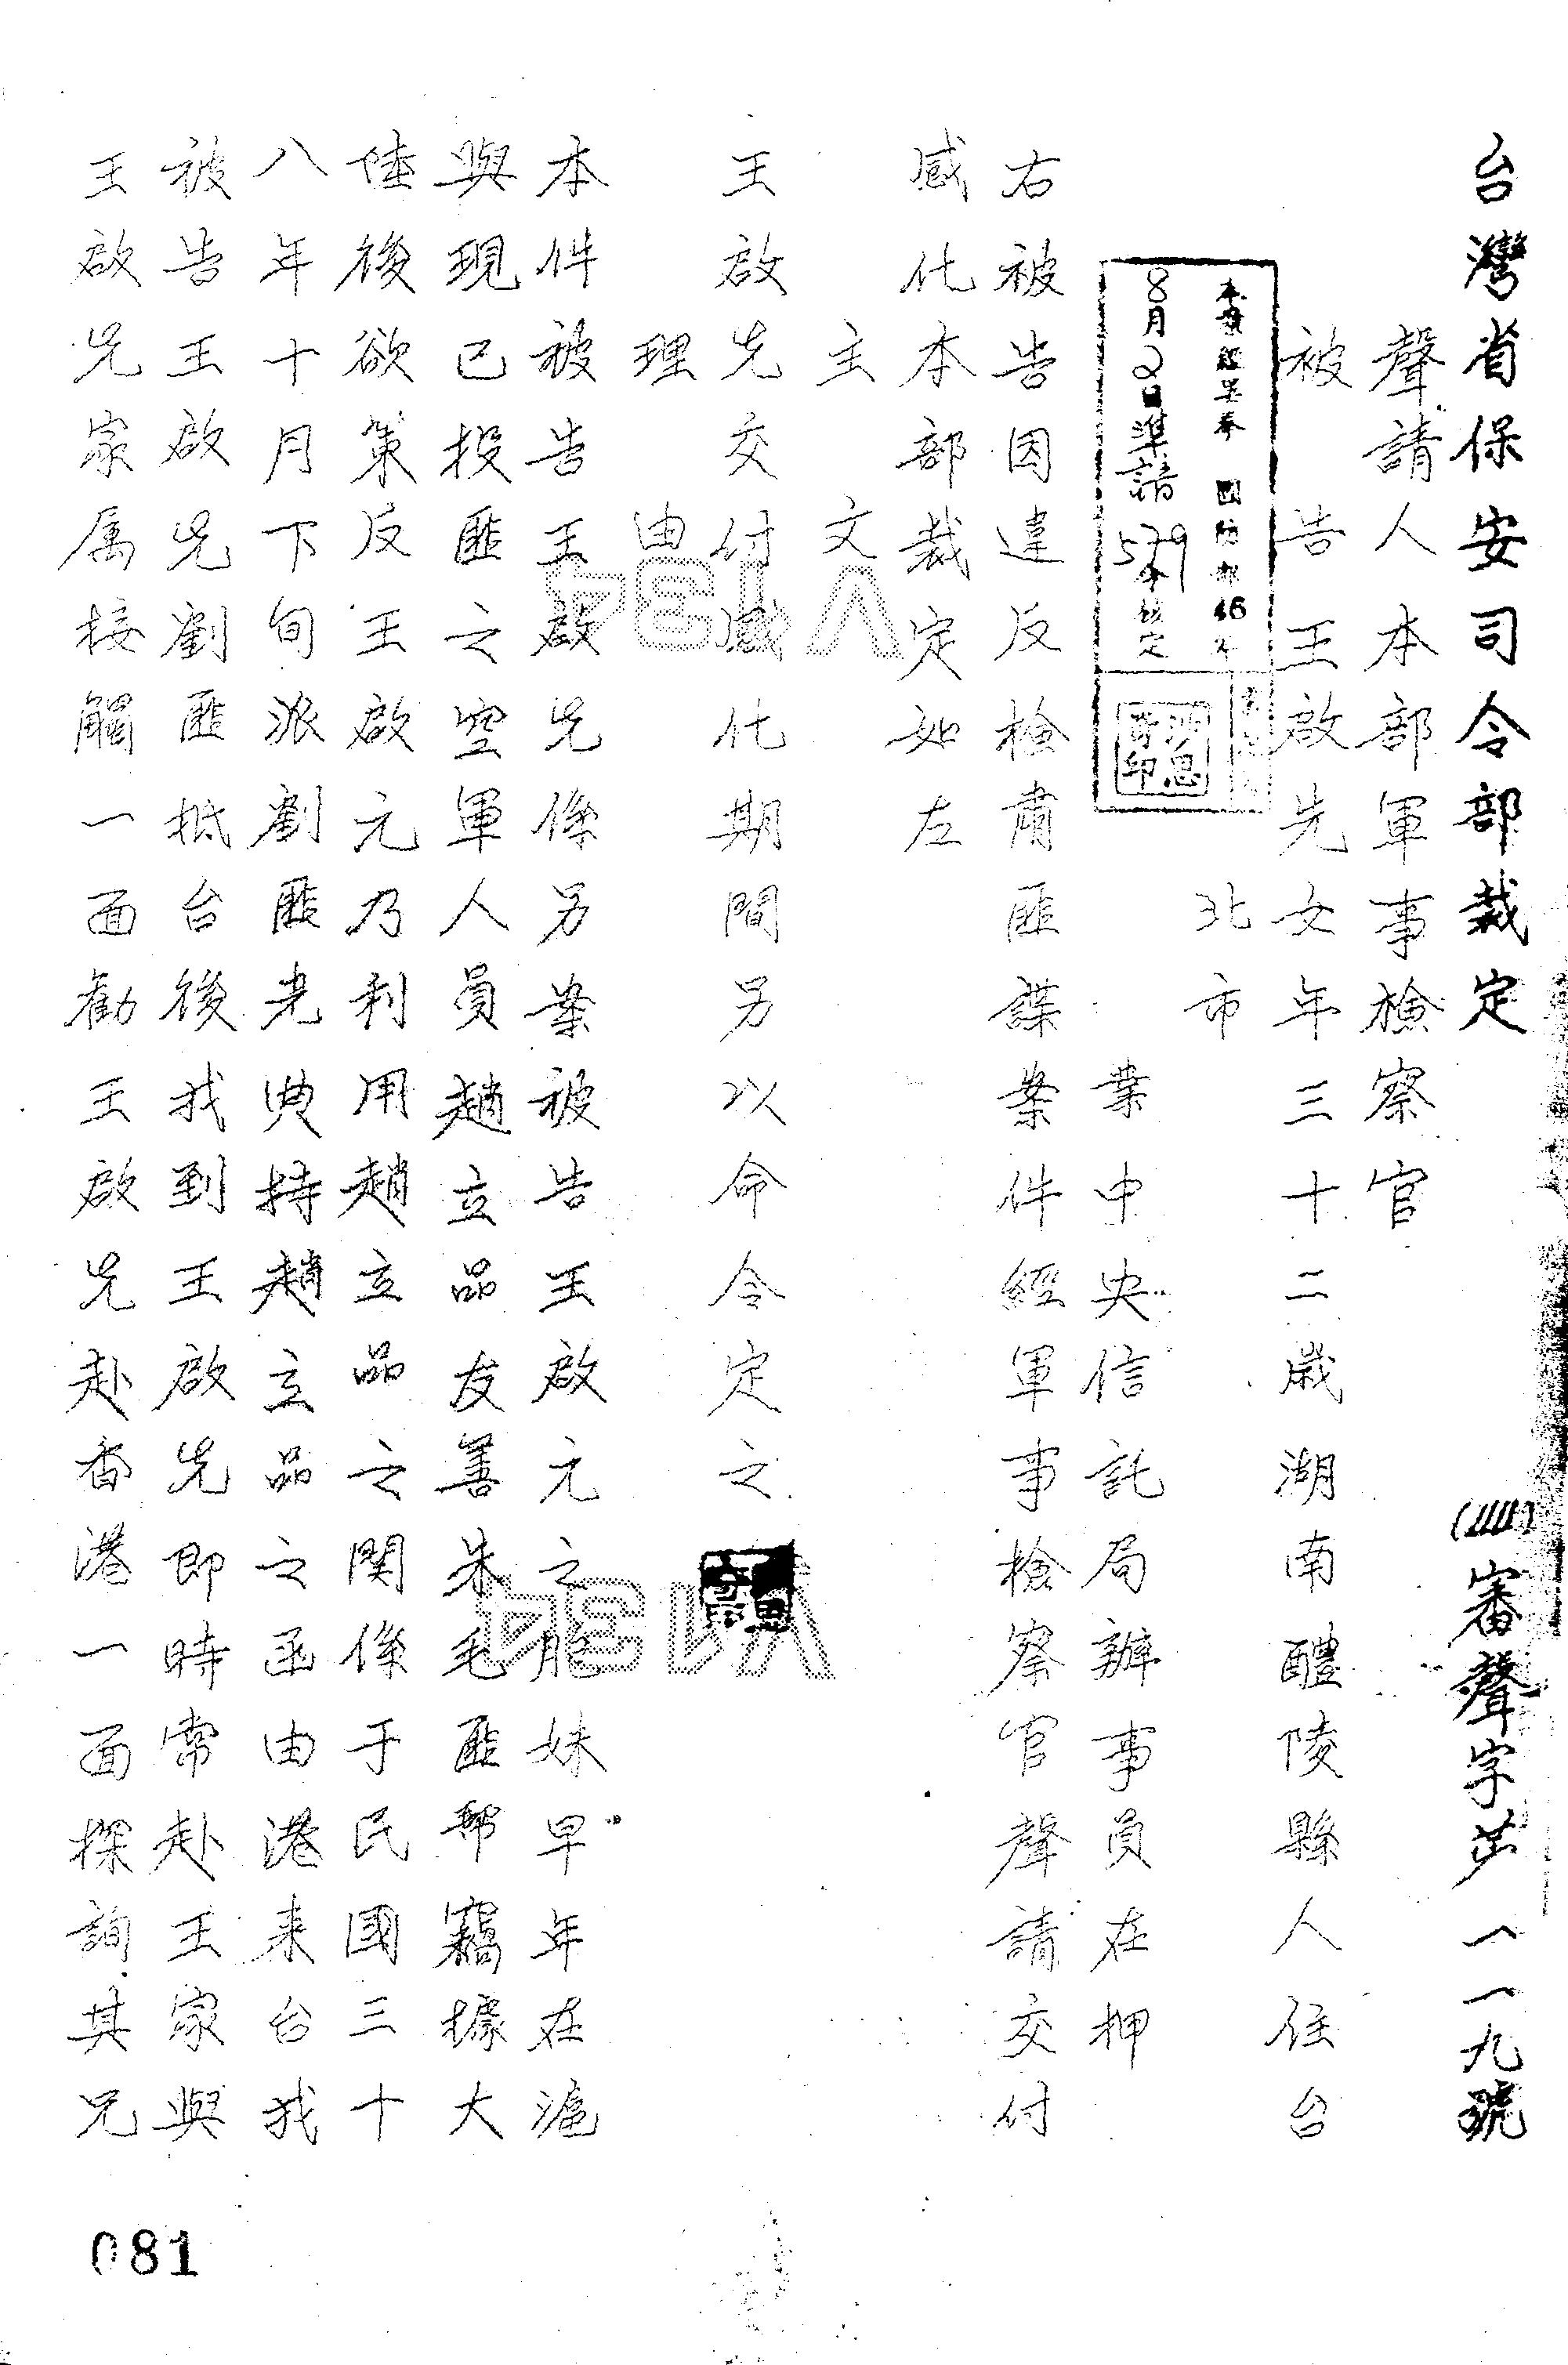 台灣省保安司令部裁定
審聲字第一一九號
聲請人本部軍事檢察官
被告王啟先女年三十二歲湖南醴陵縣人住台
北市
業中央信託局辦事員在押
國防部46年
8月2日準諳579令核定
右被告因違反檢肅匪諜案件經軍事檢察官聲請交付
感化本部裁定如左
主文
王啟先交付感化期間另以命令定之
理由
本件被告王啟先係另案被告王啟元之胞妹早年在滬
與現已投匪之空軍人員趙立品友善朱毛匪幫竊據大
陸後欲策反王啟元乃利用趙立品之関係于民國三十
八年十月下旬派劉匪光典持趙立品之函由港來台找
被告王啟先劉匪抵台後找到王啟先即時常赴王家與
王啟先家属接觸一面勸王啟先赴香港一面探詢其兄
081
V134
V134